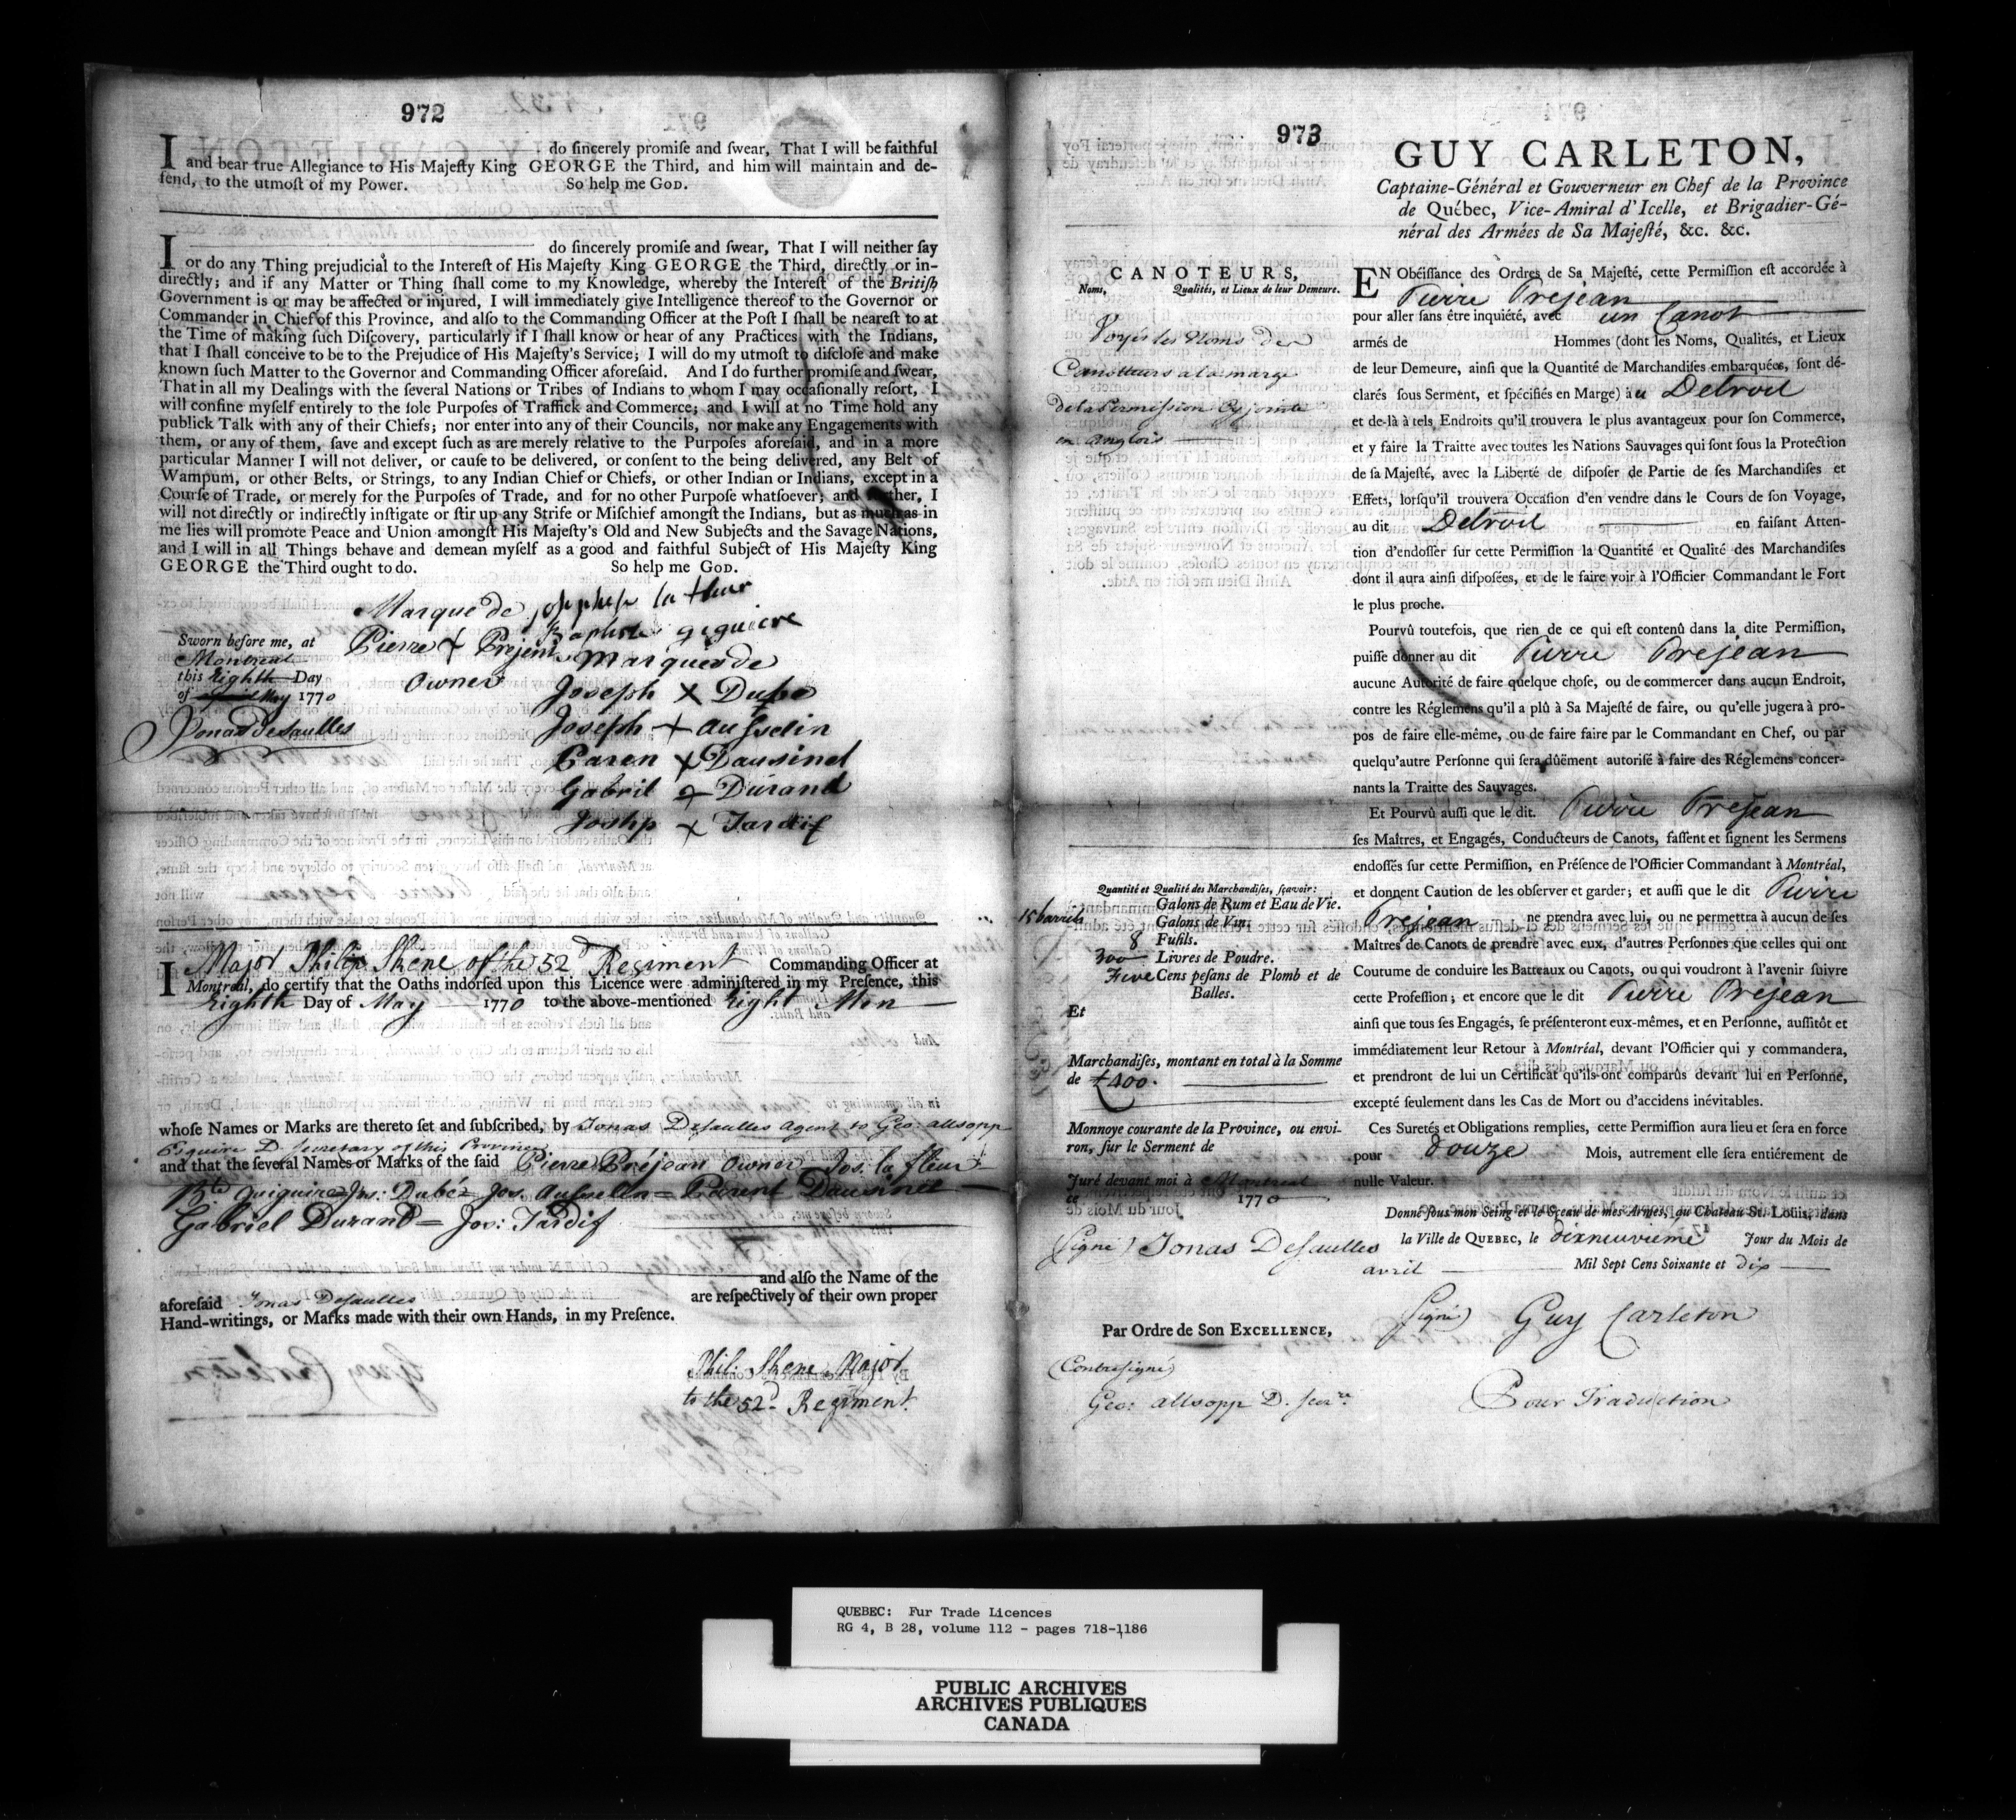 972
I do sincerely promiſe and ſwear, That I will be faithful
and bear true Allegiance to His Majeſty King GEORGE the Third, and him will maintain and de-
fend, to the utmoſt of my Power. So help me GOD.
I do sincerely promiſe and ſwear, That I will neither ſay
or do any Thing prejudicial to the Intereſt of His Majeſty King GEORGE the Third, directly or in-
directly; and if any Matter or Thing ſhall come to my Knowledge, whereby the Intereſt of the Britiſh
Government is or may be affected or injured, I will immediately give Intelligence thereof to the Governor or
Commander in Chief of this Province, and alſo to the Commanding Officer at the Poſt I ſhall be neareſt to at
the Time of making ſuch Diſcovery, particularly if I ſhall know or hear of any Practices with the Indians,
that I ſhall conceive to be to the Prejudice of His Majeſty's Service; I will do my utmoſt to diſcloſe and make
known ſuch Matter to the Governor and Commanding Officer aforeſaid. And I do further promiſe and ſwear,
That in all my Dealings with the ſeveral Nations or Tribes of Indians to whom I may occaſionally reſort, I
will confine myſelf entirely to the ſole Purpoſes of Traffick and Commerce; and I will at no Time hold any
publick Talk with any of their Chiefs; nor enter into any of their Councils, nor make any Engagements with
them, or any of them, ſave and except ſuch as are merely relative to the Purpoſes aforeſaid, and in a more
particular Manner I will not deliver, or cauſe to be delivered, or conſent to the being delivered, any Belt of
Wampum, or other Belts, or Strings, to any Indian Chief or Chiefs, or other Indian or Indians, except in a
Courſe of Trade, or merely for the Purpoſes of Trade, and for no other Purpoſe whatſoever; and further, I
will not directly or indirectly inſtigate or ſtir up any Strife or Miſchief amongſt the Indians, but as much as in
me lies will promote Peace and Union amongſt His Majeſty's Old and New Subjects and the Savage Nations,
and I will in all Things behave and demean myſelf as a good and faithful Subject of His Majeſty King
GEORGE the Third ought to do. So help me GOD.
Marque de joſepheſe la fleur
Baptiste giguiere
Sworn before me, at Pierre + Prejent Marques de
Montreal
this Eighth Day Owner
Joseph X Dube
of May 1770
Jonas Desaulles Joseph + Ausselin
Paren X Dausinel
Gabril + Durand
Joshp + Tardif
I Major Philip Skene of the 52d Regiment Commanding Officer at
Montreal, do certify that the Oaths indorſed upon this Licence were adminiſtered in my Preſence, this
Eighth Day of May 1770 to the above-mentioned Eight Men
whoſe Names or Marks are thereto ſet and ſubſcribed, by Jonas Desaulles Agent to Geo: allsopp
Esquire D Secretary of this Province
and that the ſeveral Names or Marks of the ſaid Pierre Préjean Owner Jos. la fleur
Bte Guiguire = Jos: Dubé = Jos. Ausselin = Parent Dausinet
Gabriel Durand = Jos: Tardif
and alſo the Name of the
aforeſaid Jonas Desaulles are reſpectively of their own proper
Hand-writings, or Marks made with their own Hands, in my Preſence.
Phil: Skene Major
to the 52d Regiment.
973
GUY CARLETON,
Captaine-Général et Gouverneur en Chef de la Province
de Québec, Vice-Amiral d'Icelle, et Brigadier-Gé-
néral des Armées de Sa Majeſté, &c. &c.
CANOTEURS,
Noms, Qualités, et Lieux de leur Demeure.
Voyés les Noms des
Canotteurs a la marge
de la Permiſſion Cy jointe
en anglois
Quantité et Qualité des Marchandiſes, ſçavoir:
15 barrils Galons de Rum et Eau de Vie.
Galons de Vin.
8 Fuſils.
300 Livres de Poudre.
Five Cens peſans de Plomb et de
Balles.
Et
Marchandiſes, montant en total à la Somme
de £400.
Monnoye courante de la Province, ou envi-
ron, ſur le Serment de
Juré devant moi à Montreal
ce 1770
(Signé) Jonas Desaulles
Par Ordre de Son EXCELLENCE,
(Contresigné)
Geo: allsopp D. Secre
EN Obéiſſance des Ordres de Sa Majeſté, cette Permiſſion eſt accordée à
Pierre Prejean
pour aller ſans être inquiété, avec un Canot
armés de Hommes (dont les Noms, Qualités, et Lieux
de leur Demeure, ainſi que la Quantité de Marchandiſes embarquées, ſont dé-
clarés ſous Serment, et ſpécifiés en Marge) au Detroit
et de-là à tels Endroits qu'il trouvera le plus avantageux pour ſon Commerce,
et y faire la Traitte avec toutes les Nations Sauvages qui ſont ſous la Protection
de ſa Majeſté, avec la Liberté de diſpoſer de Partie de ſes Marchandiſes et
Effets, lorſqu'il trouvera Occaſion d'en vendre dans le Cours de ſon Voyage,
au dit Detroit en faiſant Atten-
tion d'endoſſer ſur cette Permiſſion la Quantité et Qualité des Marchandiſes
dont il aura ainſi diſpoſées, et de le faire voir à l'Officier Commandant le Fort
le plus proche.
Pourvû toutefois, que rien de ce qui eſt contenû dans la dite Permiſſion,
puiſſe donner au dit Pierre Prejean
aucune Autorité de faire quelque choſe, ou de commercer dans aucun Endroit,
contre les Réglemens qu'il a plû à Sa Majeſté de faire, ou qu'elle jugera à pro-
pos de faire elle-même, ou de faire faire par le Commandant en Chef, ou par
quelqu'autre Perſonne qui ſera dûëment autoriſé à faire des Réglemens concer-
nants la Traitte des Sauvages.
Et Pourvû auſſi que le dit. Pierre Prejean
ſes Maîtres, et Engagés, Conducteurs de Canots, faſſent et ſignent les Sermens
endoſſés ſur cette Permiſſion, en Préſence de l'Officier Commandant à Montréal,
et donnent Caution de les obſerver et garder; et auſſi que le dit Pierre
Prejean ne prendra avec lui, ou ne permettra à aucun de ſes
Maîtres de Canots de prendre avec eux, d'autres Perſonnes que celles qui ont
Coutume de conduire les Batteaux ou Canots, ou qui voudront à l'avenir ſuivre
cette Profeſſion; et encore que le dit Pierre Prejean
ainſi que tous ſes Engagés, ſe préſenteront eux-mêmes, et en Perſonne, auſſitôt et
immédiatement leur Retour à Montréal, devant l'Officier qui y commandera,
et prendront de lui un Certificat qu'ils ont comparûs devant lui en Perſonne,
excepté ſeulement dans les Cas de Mort ou d'accidens inévitables.
Ces Suretés et Obligations remplies, cette Permiſſion aura lieu et ſera en force
pour douze Mois, autrement elle ſera entiérement de
nulle Valeur.
Donné ſous mon Seing et le Sceau de mes Armes, au Chateau St. Louis, dans
la Ville de QUEBEC, le dixneuvieme Jour du Mois de
avril Mil Sept Cens Soixante et dix
(Signé) Guy Carleton
Pour Traduction
QUEBEC: Fur Trade Licences
RG 4, B 28, volume 112 - pages 718-1186
PUBLIC ARCHIVES
ARCHIVES PUBLIQUES
CANADA